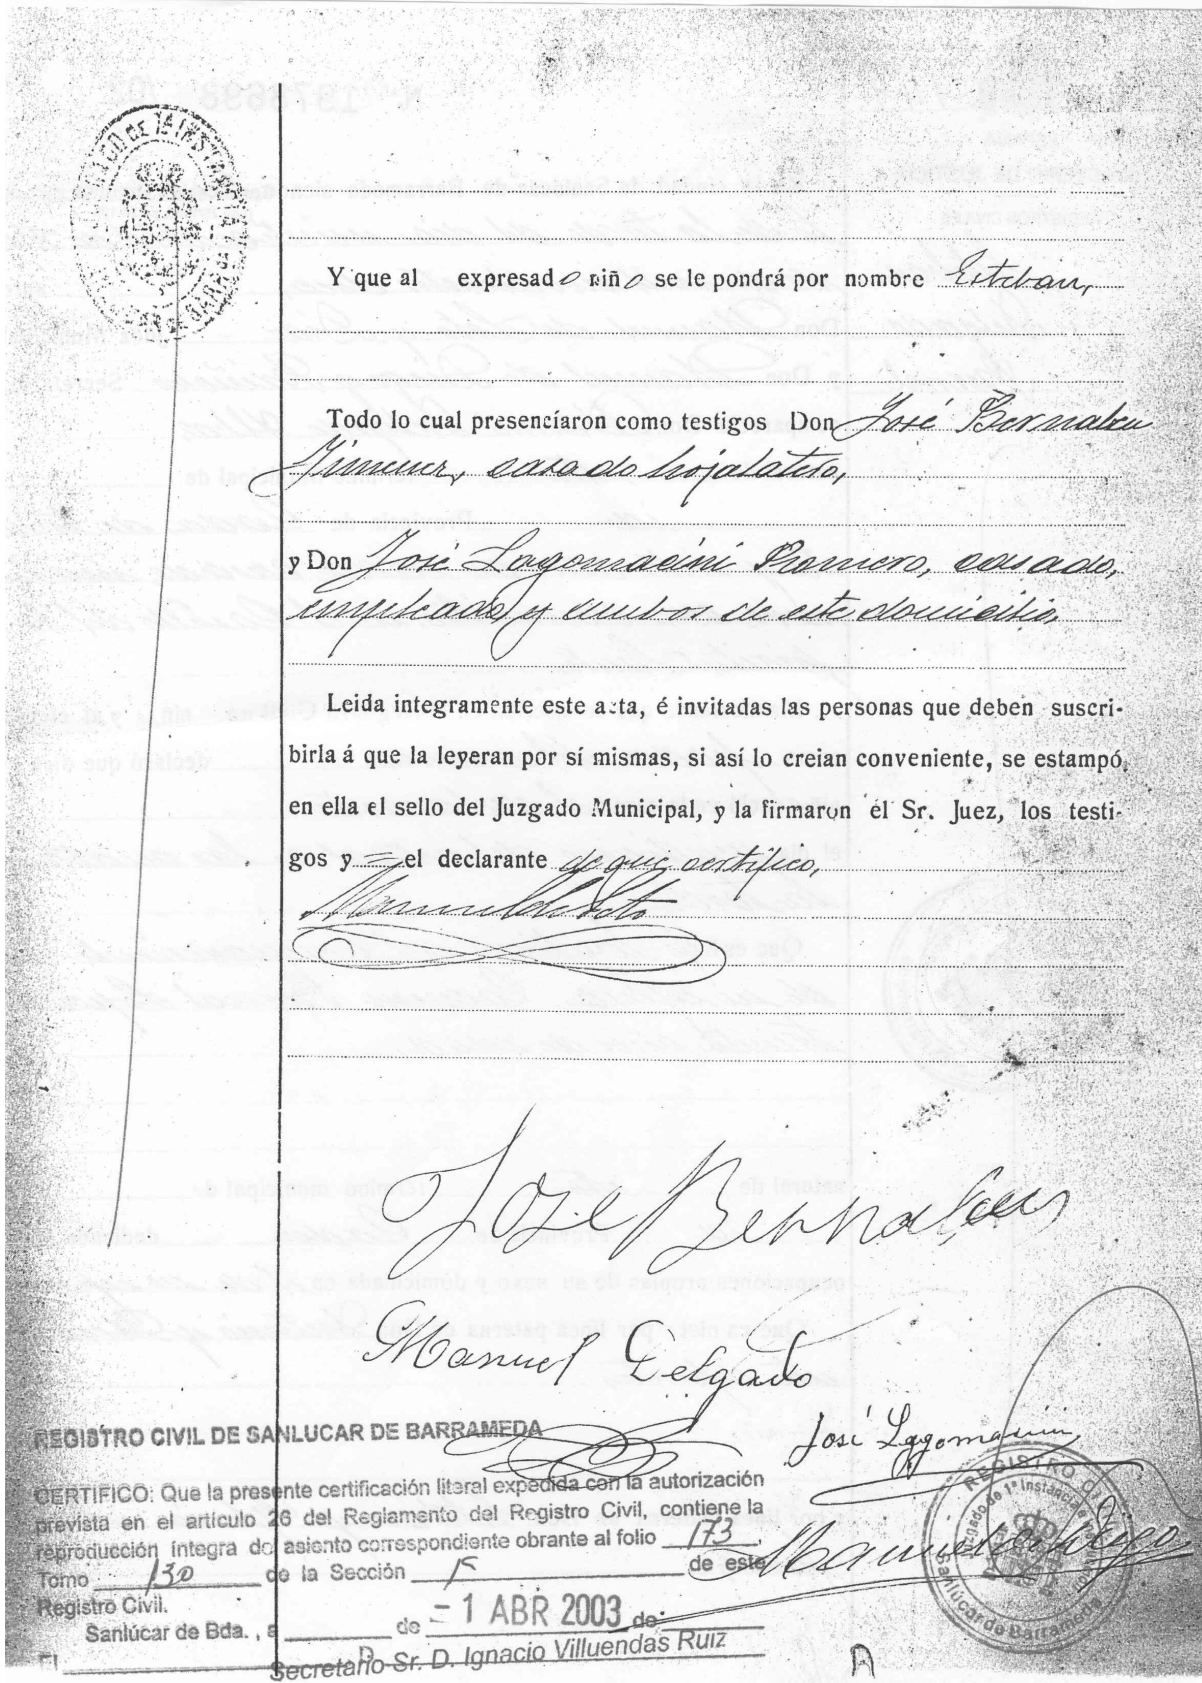 JUZGADO DE 1ª INSTANCIA
Y que al expresado niño se le pondrá por nombre Esteban,
Todo lo cual presenciaron como testigos Don José Bernabeu
Jimenez, casado hojalatero,
y Don José Lagomacini Romero, casado,
empleado, y ambos de este domicilio,
Leida integramente este acta, é invitadas las personas que deben suscri-
birla á que la leyeran por sí mismas, si así lo creian conveniente, se estampó
en ella el sello del Juzgado Municipal, y la firmaron el Sr. Juez, los testi-
gos y = el declarante de que certifico,
Jose Bernabeu
Manuel Delgado
José Lagomacini
REGISTRO CIVIL DE SANLUCAR DE BARRAMEDA
CERTIFICO: Que la presente certificación literal expedida con la autorización
prevista en el artículo 26 del Reglamento del Registro Civil, contiene la
reproducción íntegra de asiento correspondiente obrante al folio 173,
Tomo 130 de la Sección 1ª de este
Registro Civil.
Sanlúcar de Bda., a de - 1 ABR 2003 de
El Secretario Sr. D. Ignacio Villuendas Ruiz
REGISTRO CIVIL
Juzgado de 1ª Instancia
Sanlúcar de Barrameda